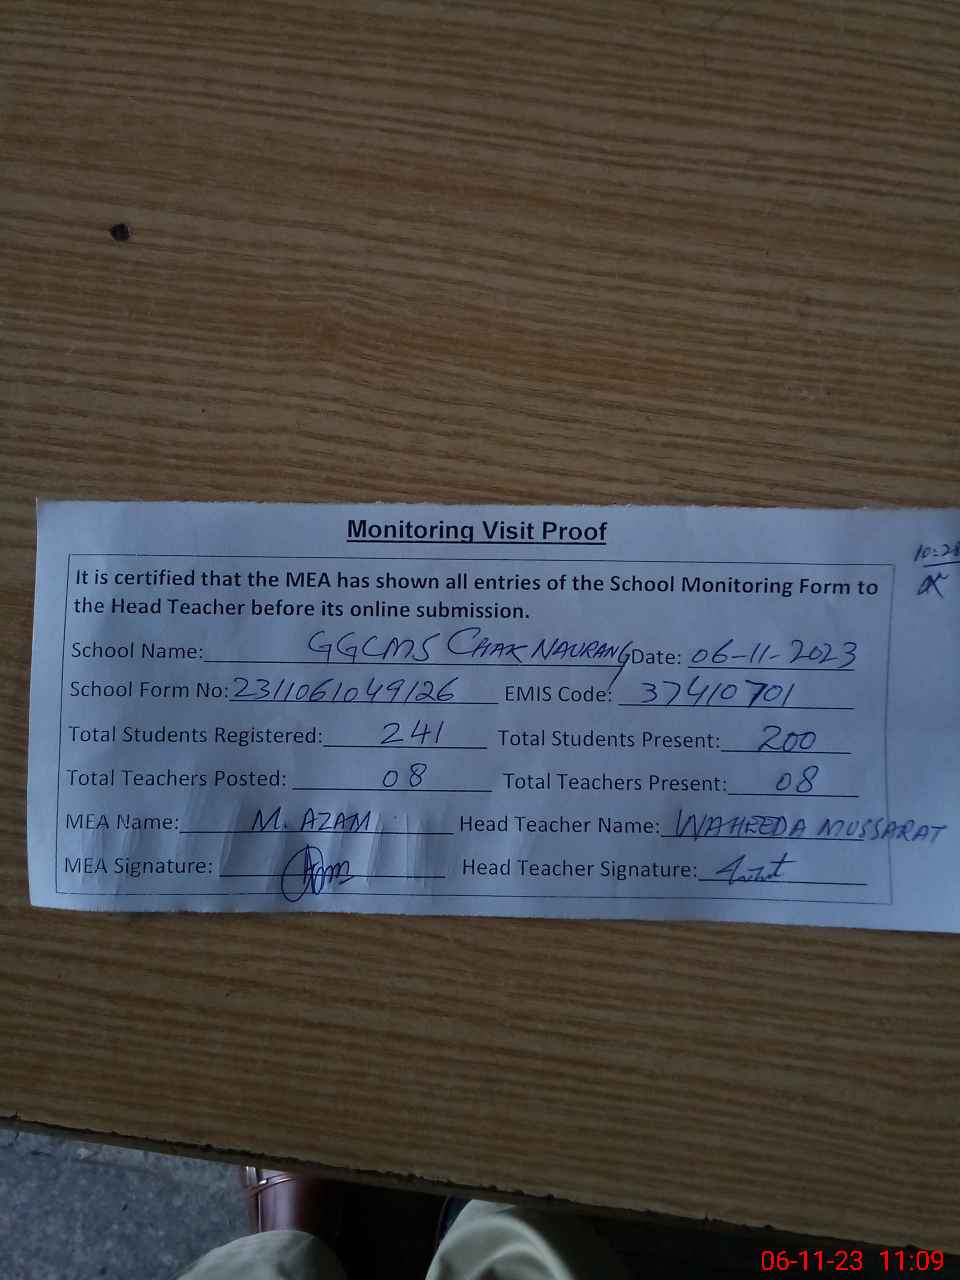 Monitoring Visit Proof
It is certified that the MEA has shown all entries of the School Monitoring Form to
the Head Teacher before its online submission.
School Name: GGCMS CHAK NAURANG Date: 06-11-2023
School Form No: 2311061049126 EMIS Code: 37410701
Total Students Registered: 241 Total Students Present: 200
Total Teachers Posted: 08 Total Teachers Present: 08
MEA Name: M. AZAM Head Teacher Name: WAHEEDA MUSSARAT
MEA Signature: Head Teacher Signature:
06-11-23 11:09